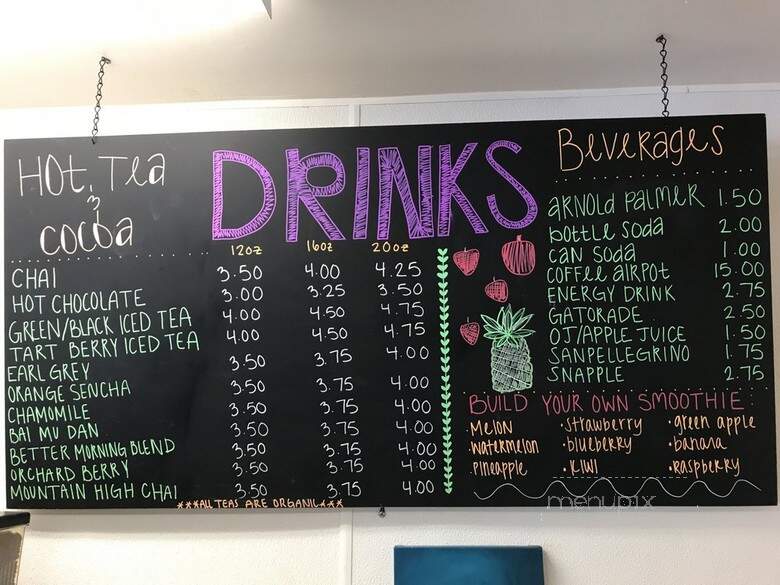 HOt, Tea
&
cocoa
DRINKS
12oz 16oz 20oz
CHAI 3.50 4.00 4.25
HOT CHOCOLATE 3.00 3.25 3.50
GREEN/BLACK ICED TEA 4.00 4.50 4.75
TART BERRY ICED TEA 4.00 4.50 4.75
EARL GREY 3.50 3.75 4.00
ORANGE SENCHA 3.50 3.75 4.00
CHAMOMILE 3.50 3.75 4.00
BAI MU DAN 3.50 3.75 4.00
BETTER MORNING BLEND 3.50 3.75 4.00
ORCHARD BERRY 3.50 3.75 4.00
MOUNTAIN HIGH CHAI 3.50 3.75 4.00
***ALL TEAS ARE ORGANIC***
Beverages
ARNOLD PALMER 1.50
bottle soda 2.00
CAN SODA 1.00
COFFEE AIRPOT 15.00
ENERGY DRINK 2.75
GATORADE 2.50
OJ/APPLE JUICE 1.50
SANPELLEGRINO 1.75
SNAPPLE 2.75
BUILD YOUR OWN SMOOTHIE:
·Melon ·strawberry ·green apple
·watermelon ·blueberry ·banana
·Pineapple ·KIWI ·Raspberry
menupix